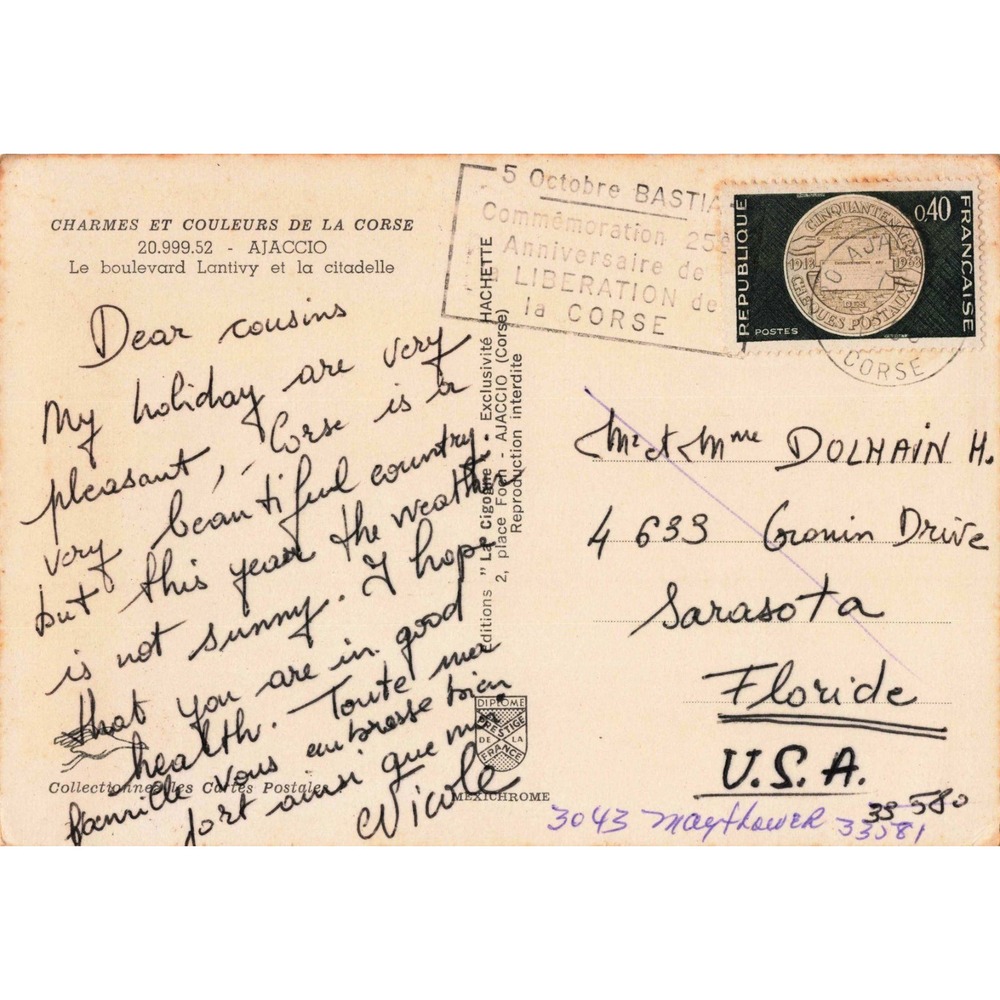 CHARMES ET COULEURS DE LA CORSE
20.999.52 - AJACCIO
Le boulevard Lantivy et la citadelle
Dear cousins
My holiday are very
pleasant, - Corse is a
very beautiful country.
but this year the weather
is not sunny. I hope
that you are in good
health. Toute ma
famille vous embrasse bien
fort ainsi que moi.
Nicole
Collectionnez les Cartes Postales
Editions "La Cigogne" - Exclusivité HACHETTE
2, place Foch - AJACCIO (Corse)
Reproduction interdite
DIPLOME
PRESTIGE
DE LA
FRANCE
MEXICHROME
5 Octobre BASTIA
Commémoration 25e
Anniversaire de
la LIBERATION de
la CORSE
REPUBLIQUE
FRANCAISE
0,40
CINQUANTENAIRE
1918 1968
CHEQUES POSTAUX
POSTES
AJA
CORSE
Mr et Mme DOLHAIN H.
4633 Cronin Drive
Sarasota
Floride
U.S.A.
33580
3043 Mayflower 33581